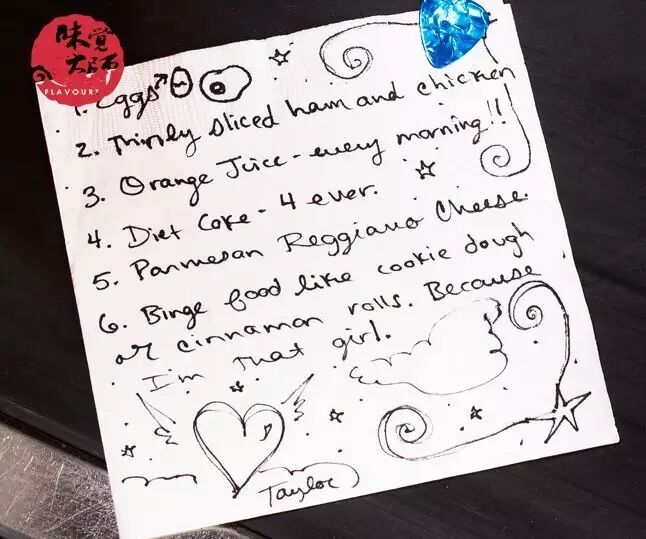 味覚
大师
FLAVOURS
1. Eggs
2. Thinly sliced ham and chicken
3. Orange Juice - every morning!!
4. Diet Coke - 4 ever.
5. Parmesan Reggiano Cheese.
6. Binge food like cookie dough
or cinnamon rolls. Because
I'm that girl.
Taylor